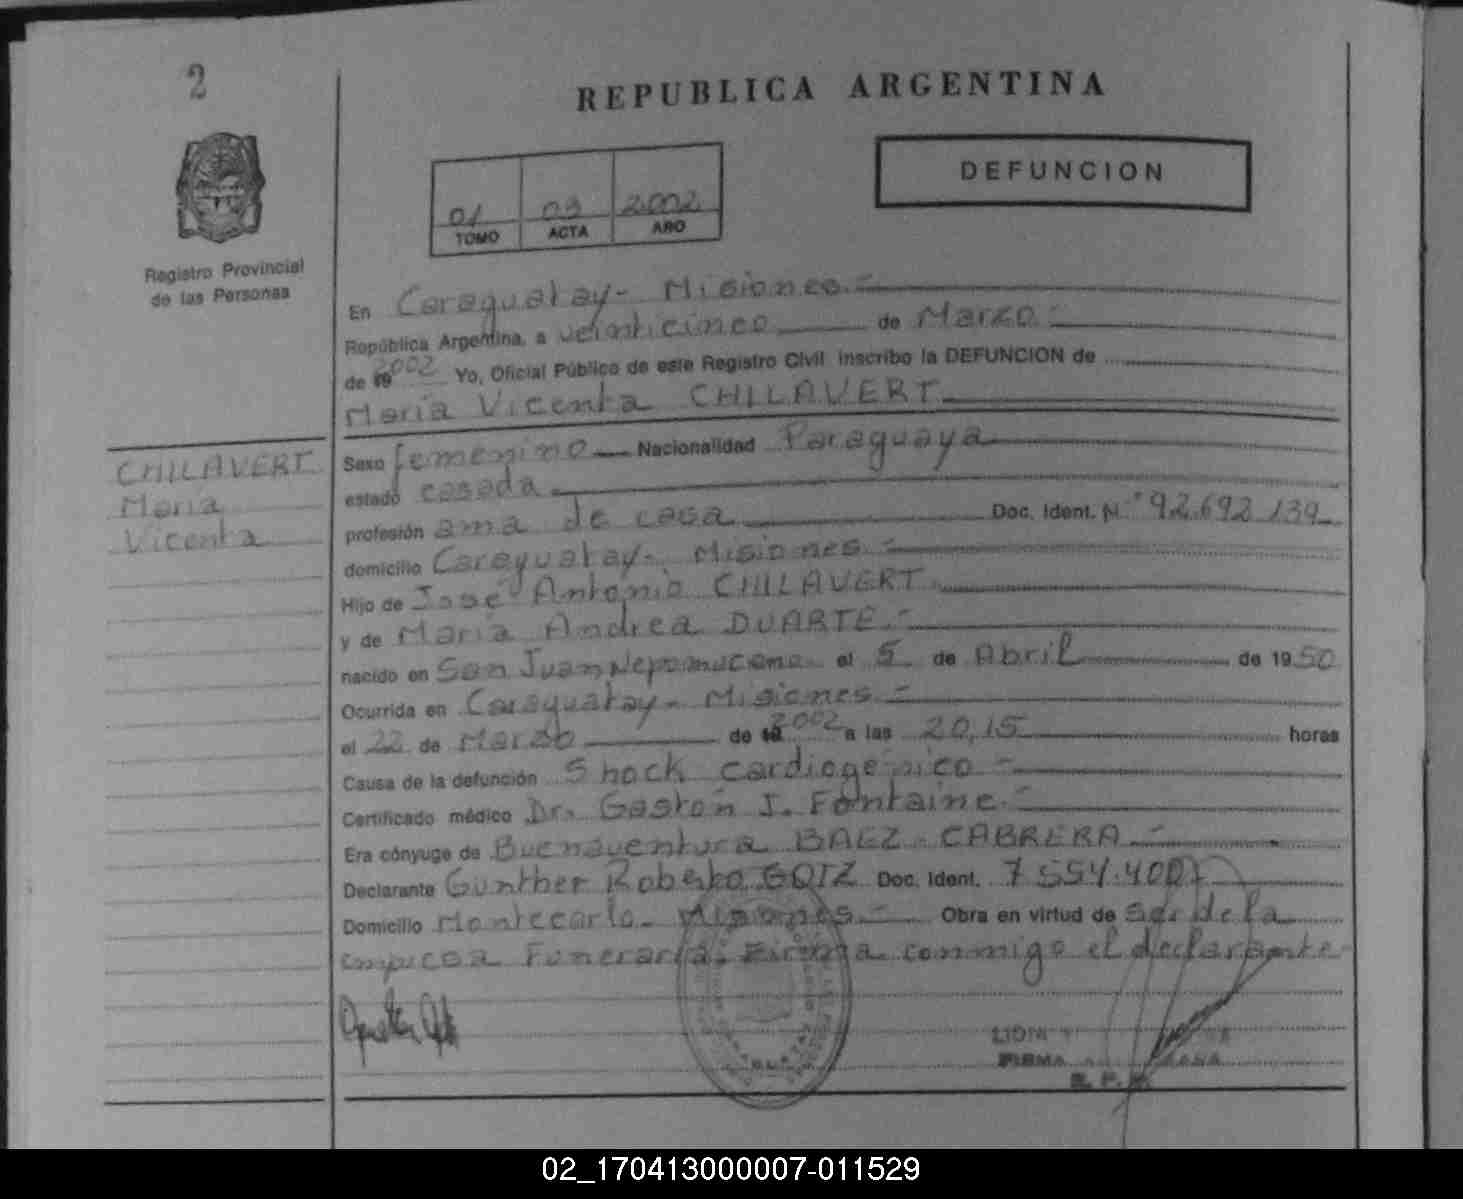 2
REPUBLICA ARGENTINA
DEFUNCION
01 03 2002
TOMO ACTA AÑO
Registro Provincial
de las Personas
En Caraguatay - Misiones.-
República Argentina, a veinticinco de Marzo.-
de 19 2002 Yo, Oficial Público de este Registro Civil inscribo la DEFUNCION de
María Vicenta CHILAVERT.
CHILAVERT
María
Vicenta
Sexo femenino Nacionalidad Paraguaya
estado casada
profesión ama de casa Doc. Ident. N° 92.692.139
domicilio Caraguatay - Misiones.-
Hijo de José Antonio CHILAVERT.
y de María Andrea DUARTE.-
nacido en San Juan Nepomuceno el 5 de Abril de 1950
Ocurrida en Caraguatay - Misiones.-
el 22 de Marzo de 19 2002 a las 20,15 horas
Causa de la defunción Shock cardiogénico.-
Certificado médico Dr. Gastón J. Fontaine.-
Era cónyuge de Buenaventura BAEZ - CABRERA.-
Declarante Gunther Roberto GOTZ Doc. Ident. 7.554.400
Domicilio Montecarlo - Misiones.- Obra en virtud de de la
empresa Funeraria. Firma conmigo el declarante
LIDIA
FIRMA
02_170413000007-011529